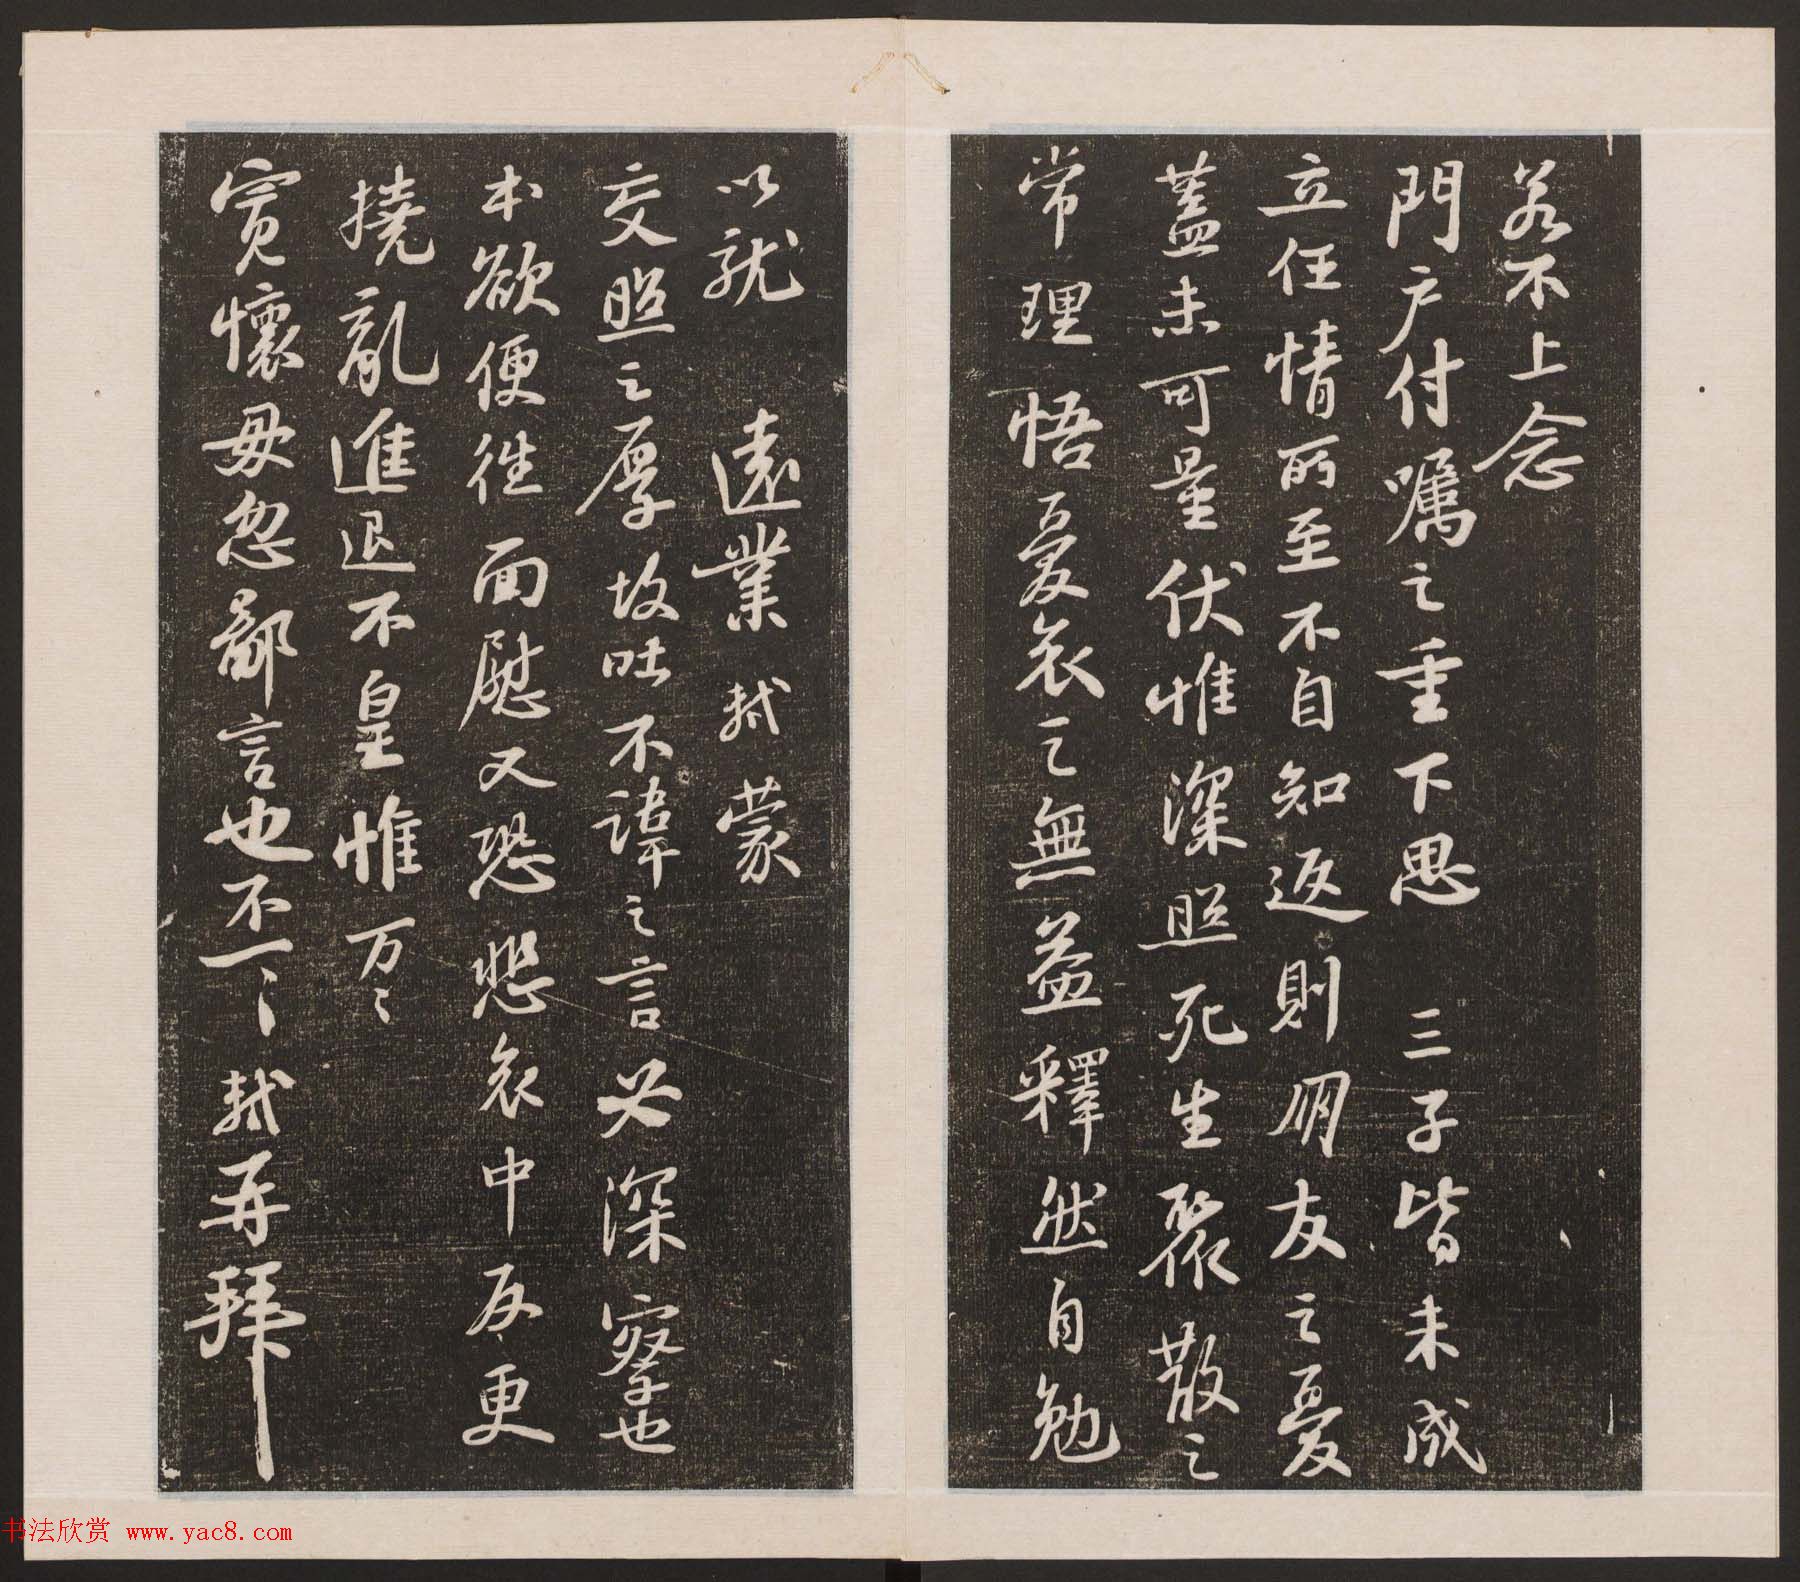 若不上念
門户付囑之重下思三子皆未成
立任情所至不自知返則朋友之憂
蓋未可量伏惟深照死生聚散之
常理悟憂哀之無益釋然自勉
以就遠業軾蒙
交照之厚故吐不諱之言必深察也
本欲便往面慰又恐悲哀中反更
撓亂進退不皇惟万〻
寬懷毋忽鄙言也不一〻軾再拜
书法欣赏 www.yac8.com